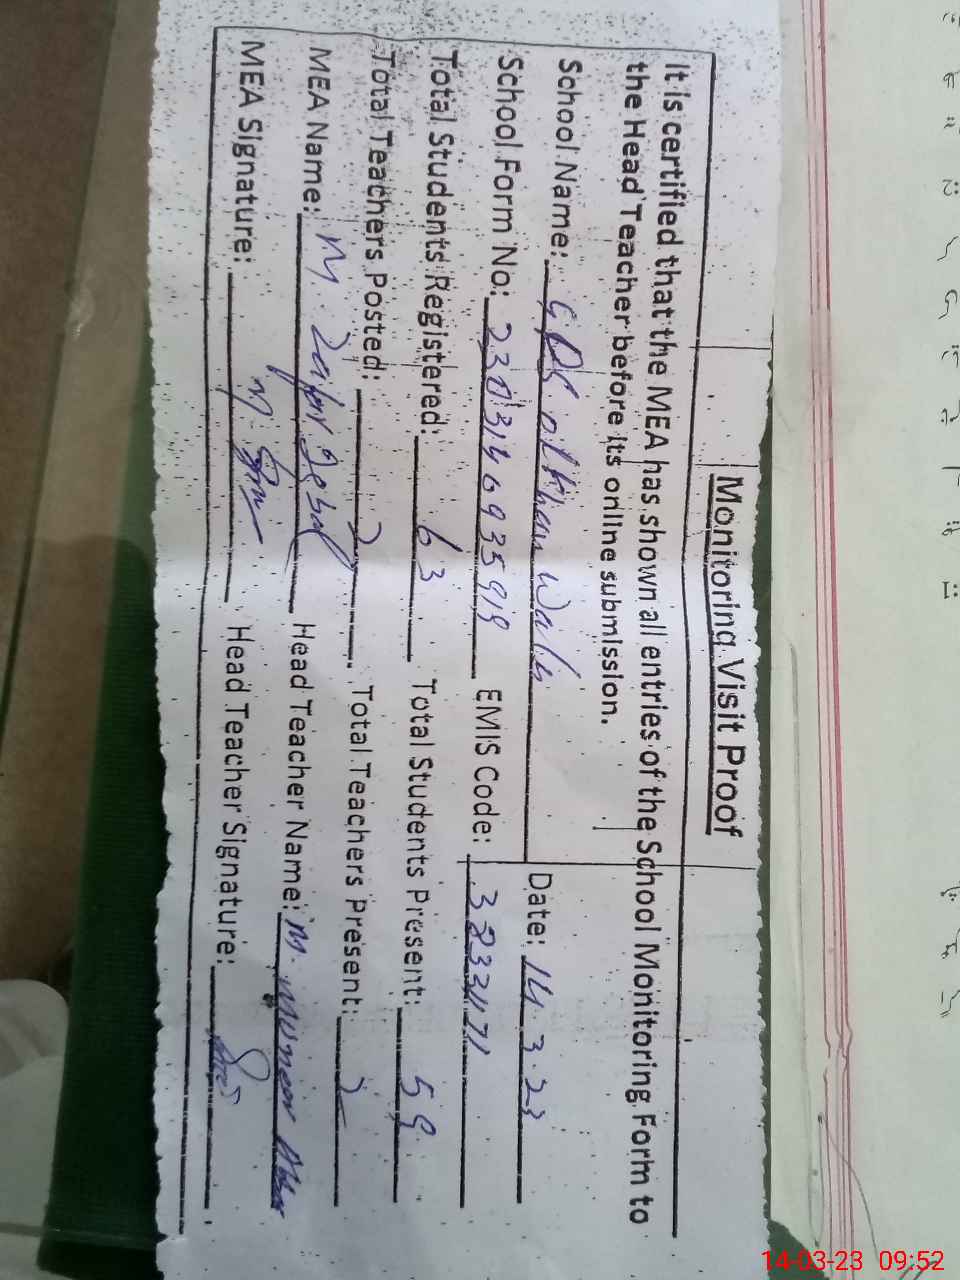 Monitoring Visit Proof
It is certified that the MEA has shown all entries of the School Monitoring Form to
the Head Teacher before its online submission.
School Name: GPS Walla Date: 14.3.23
School Form No: EMIS Code: 38331171
Total Students Registered: 63 Total Students Present: 59
Total Teachers Posted: 2 Total Teachers Present: 2
MEA Name: M. Zafar Iqbal Head Teacher Name: M.
MEA Signature: Head Teacher Signature:
14-03-23 09:52